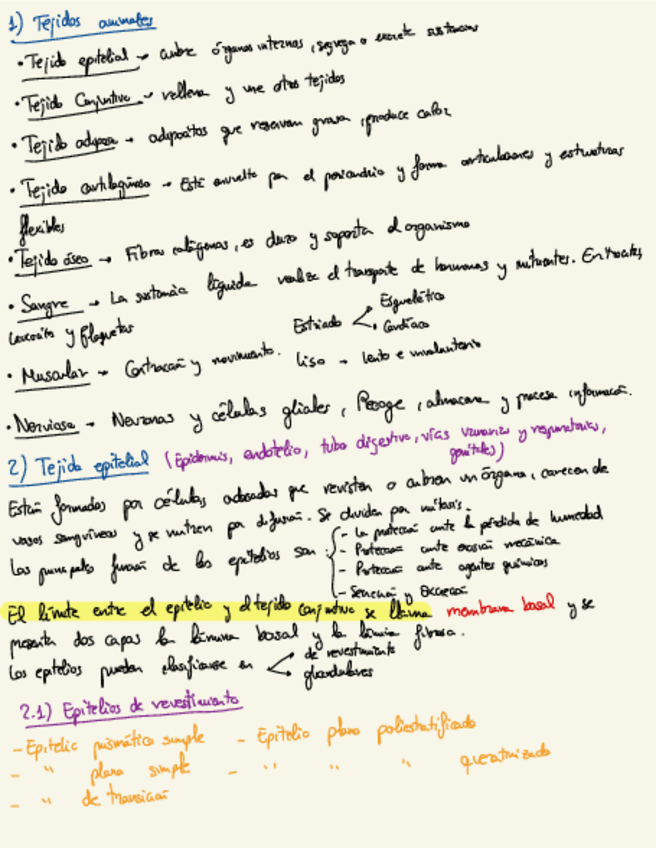 1) Tejidos animales
• Tejido epitelial → cubre órganos internos, segrega o excreta sustancias
• Tejido Conjuntivo → rellena y une otros tejidos
• Tejido adiposo → adipocitos que reservan grasa, produce calor
• Tejido cartilaginoso → Está envuelto por el pericondrio y forma articulaciones y estructuras
flexibles
• Tejido óseo → Fibras colágenas, es duro y soporta el organismo
• Sangre → La sustancia líquida realiza el transporte de hormonas y nutrientes. Eritrocitos,
Leucocitos y plaquetas
• Muscular → Contracción y movimiento. Estriado < Esquelético
• Cardíaco
Liso → lento e involuntario
• Nervioso → Neuronas y células gliales, Recoge, almacena y procesa información.
2) Tejido epitelial (Epidermis, endotelio, tubo digestivo, vías urinarias y respiratorias,
genitales)
Están formados por células adosadas que revisten o cubren un órgano, carecen de
vasos sanguíneos y se nutren por difusión. Se dividen por mitosis.
Las principales función de los epitelios son:
- La protección ante la pérdida de humedad
- Protección ante erosión mecánica
- Protección ante agentes químicos
- Secreción y Excreción
El límite entre el epitelio y el tejido conjuntivo se llama membrana basal y se
presenta dos capas la lámina basal y la lámina fibrosa.
Los epitelios pueden clasificarse en < de revestimiento
glandulares
2.1) Epitelios de revestimiento
- Epitelio prismático simple - Epitelio plano poliestratificado
- " plano simple - " " " queratinizado
- " de transición